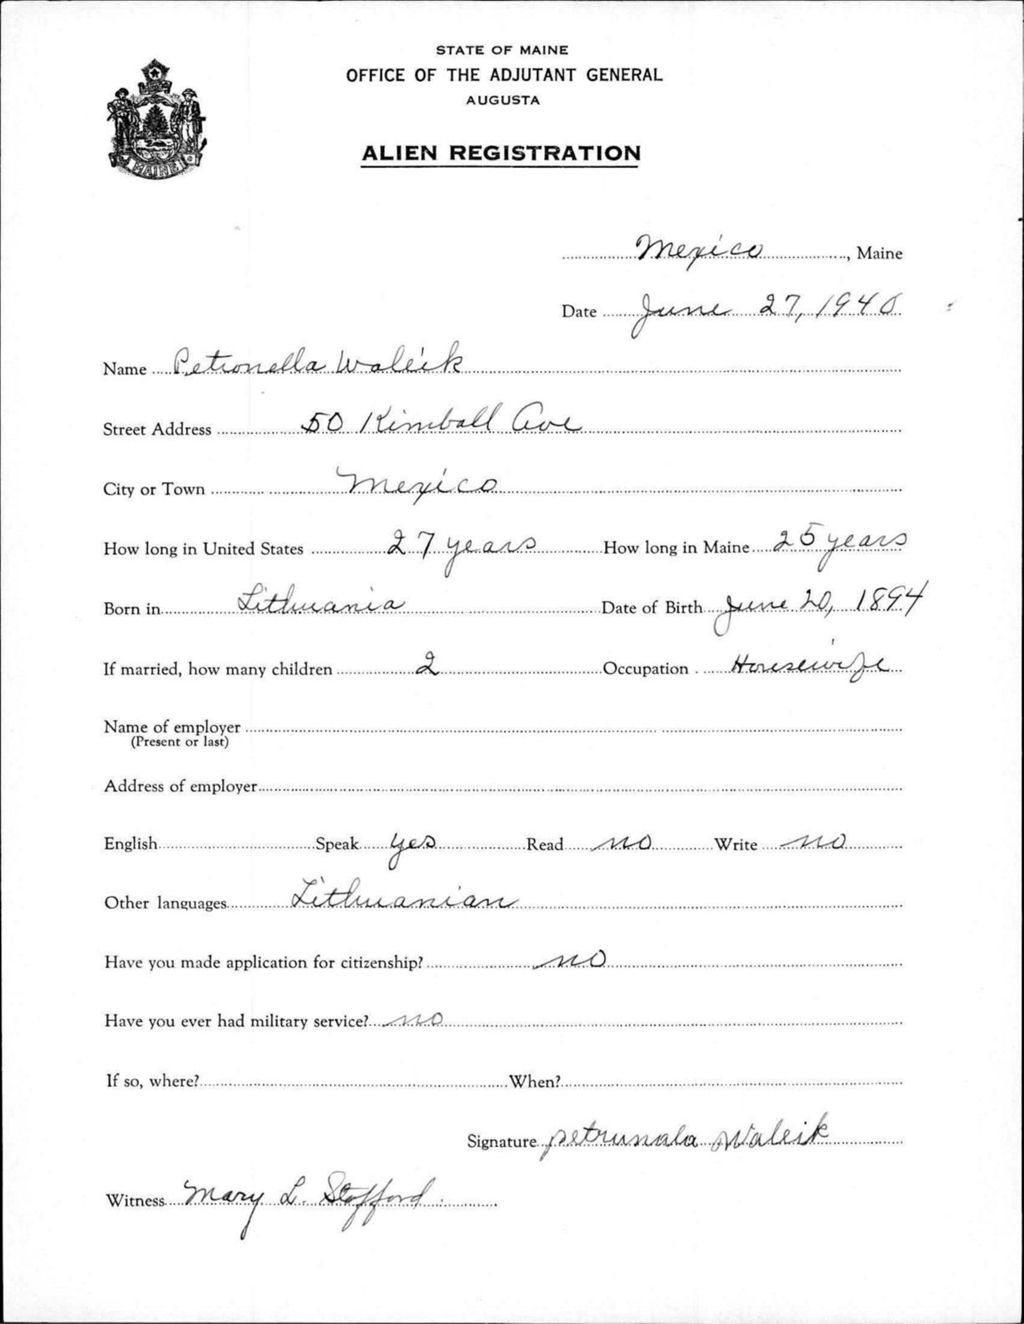 STATE OF MAINE
OFFICE OF THE ADJUTANT GENERAL
AUGUSTA
ALIEN REGISTRATION
MAINE
Mexico, Maine
Date June 27, 1940
Name Petronella Waleik
Street Address 50 Kimball Ave
City or Town Mexico
How long in United States 27 years How long in Maine 25 years
Born in Lithuania Date of Birth June 20, 1894
If married, how many children 2 Occupation Housewife
Name of employer
(Present or last)
Address of employer
English Speak yes Read no Write no
Other languages Lithuanian
Have you made application for citizenship? no
Have you ever had military service? no
If so, where? When?
Signature petrunala Waleik
Witness Mary L. Stafford